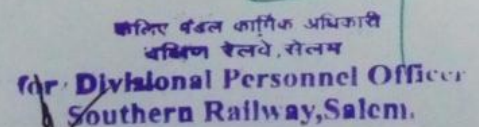 कृतिए मंडल कार्मिक अधिकारी
दक्षिण रेलवे, सेलम
for Divisional Personnel Officer
Southern Railway,Salem.